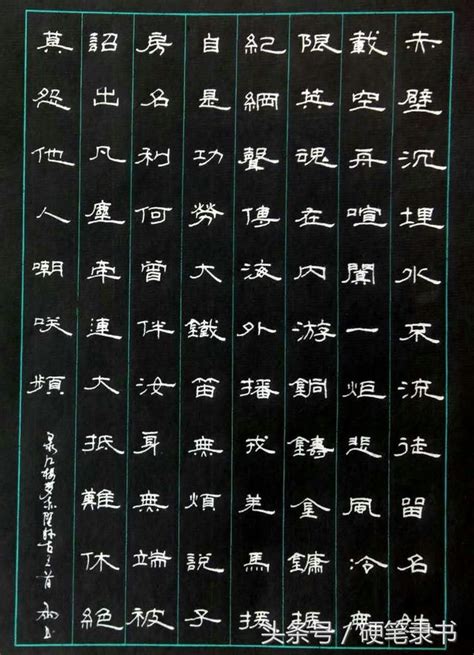 赤壁沉埋水不流徒留名姓
載空舟喧闐一炬悲風冷無
限英魂在內游銅鑄金鏞振
紀綱聲傳海外播戎羌馬援
自是功勞大鐵笛無煩說子
房名利何曾伴汝身無端被
詔出凡塵牽連大抵難休絕
莫怨他人嘲咲頻
录红楼梦赤壁怀古
头条号 / 硬笔隶书